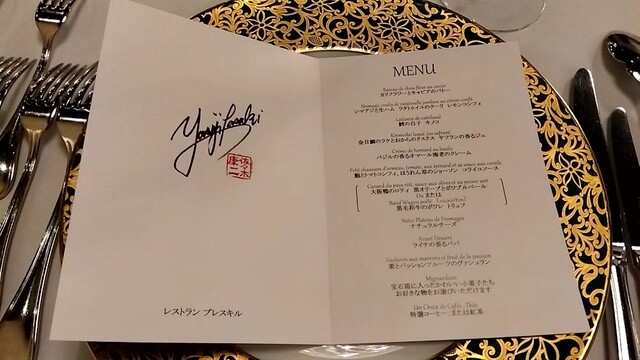 佐々木
康二
レストラン プレスキル
MENU
Bateau de chou-fleur au caviar
カリフラワーとキャビアのバトー
シマアジと生ハム ラタトゥイユのクーリ レモンコンフィ
Laitance de cabillaud
鱈の白子 キノコ
金目鯛のラケとおからのクスクス サフランの香るジュ
Crème de homard au basilic
バジルの香るオマール海老のクレーム
Petit chausson d'ormeau, tomate, aux épinard et sa sauce aux corails
鮑とトマトコンフィ、ほうれん草のショーソン コライユソース
Canard du pays rôti, sauce aux olives et au poivre vert
大阪鴨のロティ 黒オリーブとポワブルベール
Ou または
Bœuf Wagyu poêlé
黒毛和牛のポワレ トリュフ
Notre Plateau de Fromages
ナチュラルチーズ
Avant Dessert
ライチの香るババ
Vacherin aux marrons et fruit de la passion
栗とパッションフルーツのヴァシュラン
Mignardises
宝石箱に入ったかわいい小菓子たち
お好きな物をお選びいただけます
Un Choix de Cafés, Thés
特選コーヒー、または紅茶